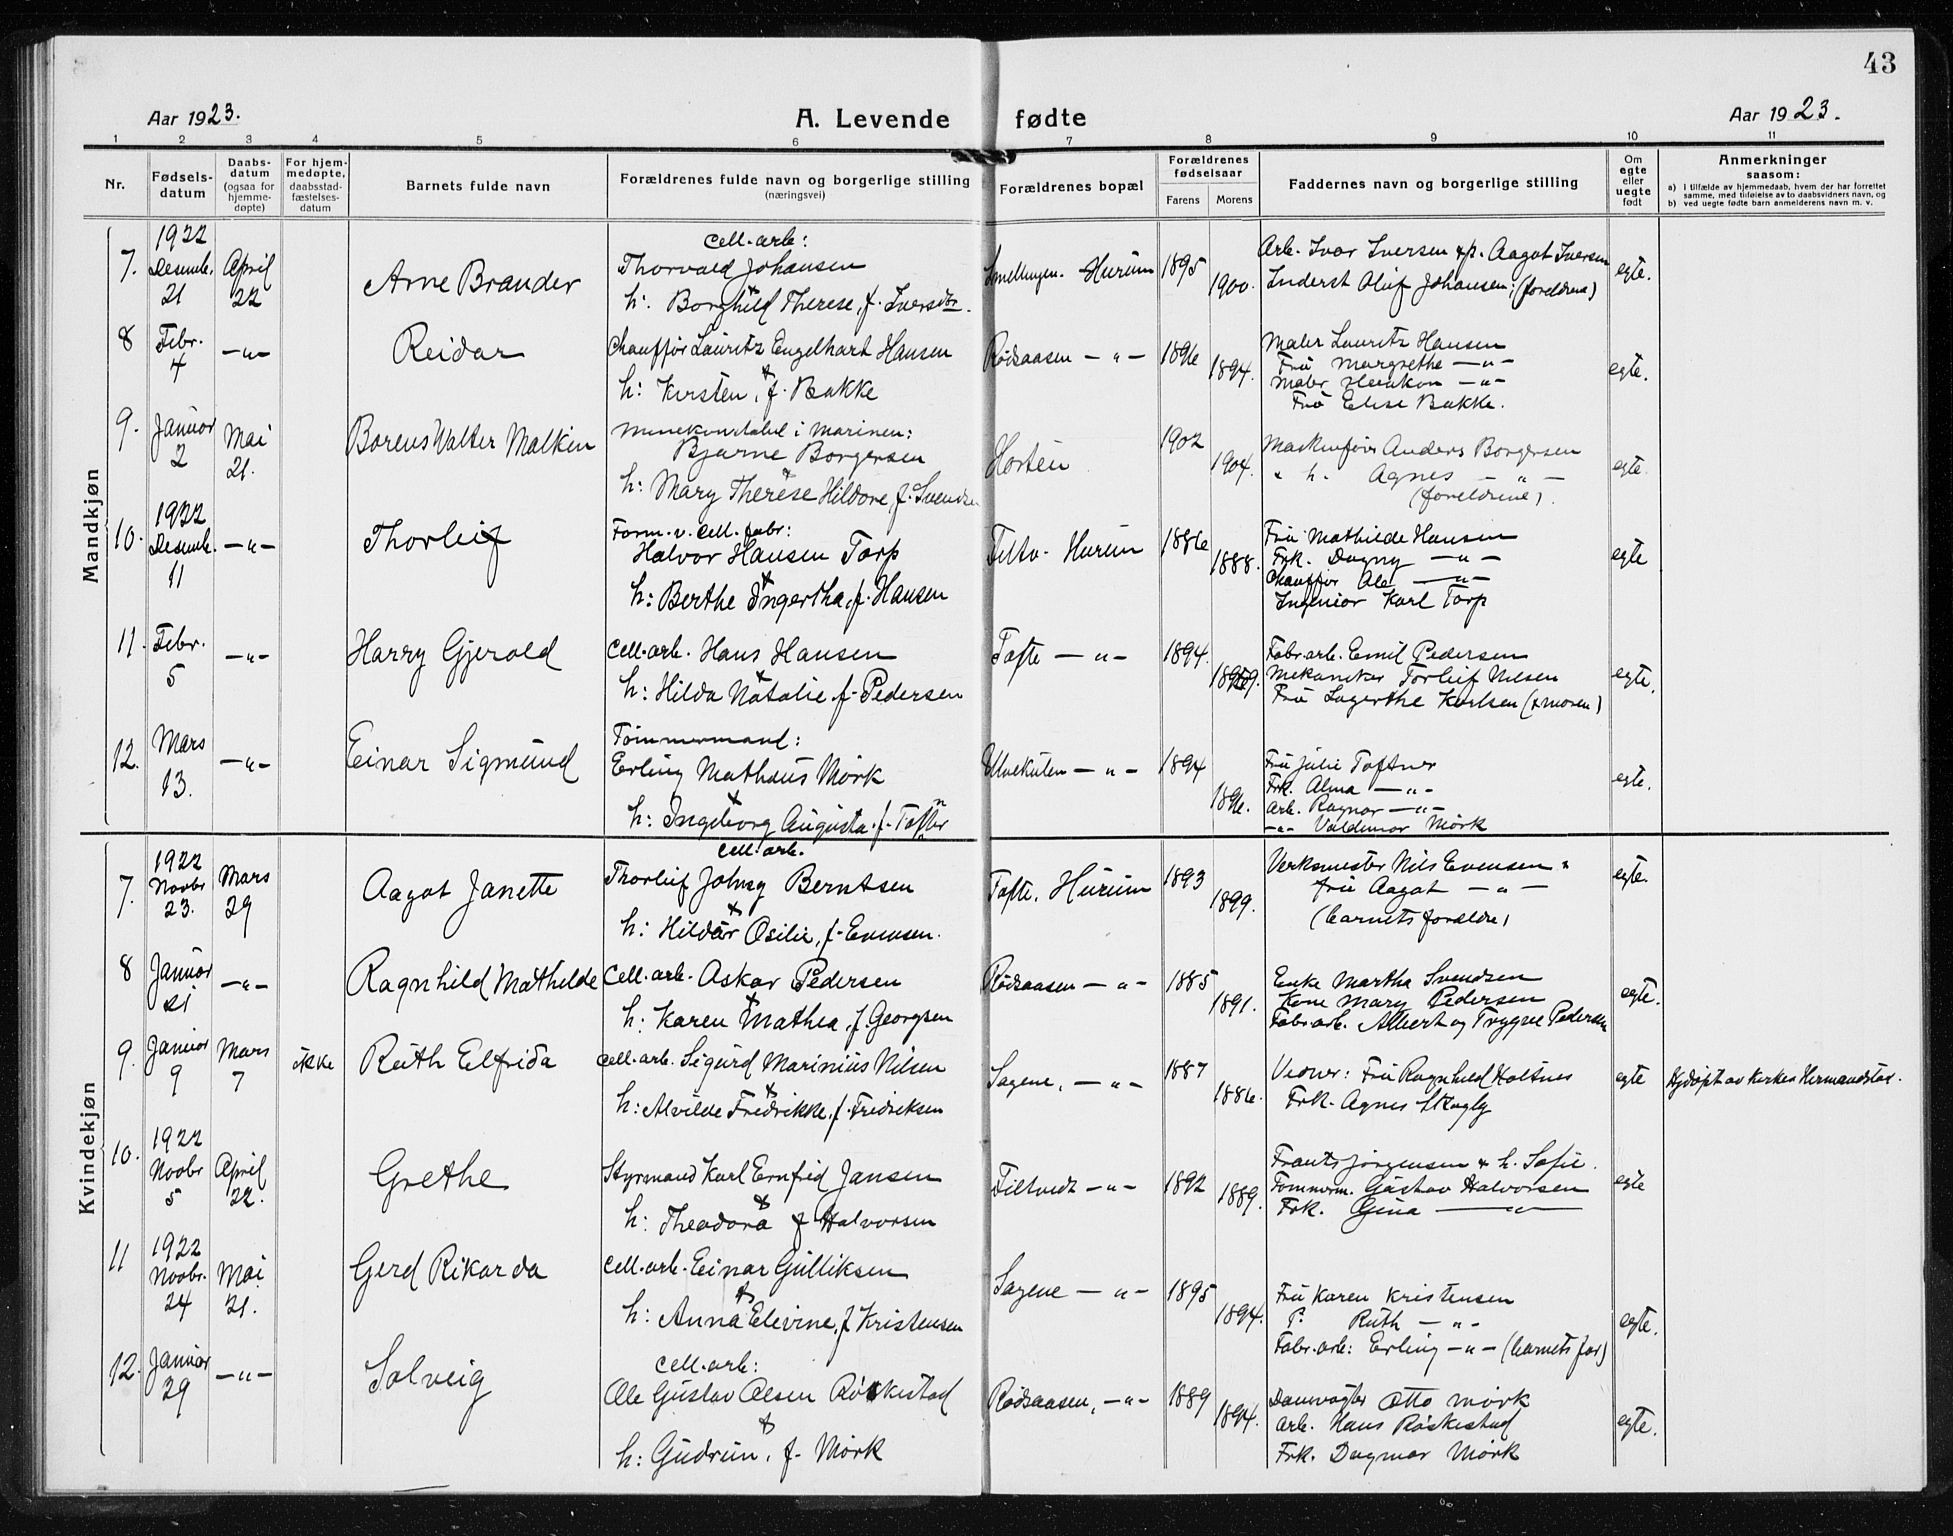 43
Aar 1923.
A. Levende fødte
Aar 1923.
1 2 3 4 5 6 7 8 9 10 11
Nr.
Fødsels-
datum
Daabs-
datum
(ogsaa for
hjemme-
døpte)
For hjem-
medøpte,
daabsstad-
fæstelses-
datum
Barnets fulde navn
Forældrenes fulde navn og borgerlige stilling
(næringsvei)
Forældrenes bopæl
Forældrenes
fødselsaar
Farens Morens
Faddernes navn og borgerlige stilling
Om
egte
eller
uegte
født
Anmerkninger
saasom:
a) i tilfælde av hjemmedaab, hvem der har forrettet
samme, med tilføielse av to daabsvidners navn, og
b) ved uegte fødte barn anmelderens navn m. v.
Mandkjøn
7.
1922
Desemb.
21
April
22
Arne Brander
Cell. arb:
Thorvald Johansen
h: Borghild Therese, f. Iversen.
Hurum
1895
1900.
Arb. Ivar Iversen & p. Aagot Iversen
Inderst Oluf Johansen; (foreldrene)
egte.
8
Febr.
4
—„—
Reidar
Chauffør Lauritz Engelhart Hansen
h: Kirsten, f. Bakke
Rødsaasen —„—
1896
1894.
Maler Lauritz Hansen
Fru Margrethe —„—
Maler Haakon —„—
Fru Elise Bakke.
egte.
9.
Januar
2
Mai
21.
Borens Walter Malkin
Minekonstabel i Marinen:
Bjarne Borgersen
h: Mary Therese Hildore, f. Svendsen
Horten
1902
1904.
Maskinfører Anders Borgersen
„ h. Agnes —„—
(foreldrene).
egte.
10.
1922
Desemb.
11
—„—
Thorleif
Form. v. Cell. fabr:
Halvor Hansen Torp
h: Berthe Ingertha, f. Hansen
Hurum
1886
1888.
Fru Mathilde Hansen
Frk. Dagny —„—
Chauffør Alf —„—
Ingeniør Karl Torp
egte
11.
Febr.
5
—„—
Harry Gjerold
Cell. arb. Hans Hansen
h: Hilda Natalie f. Pedersen
Tofte —„—
1894.
Fabr. arb. Emil Pedersen
Mekaniker Torleif Nilsen
Fru Lagerthe Karlsen (& moren)
egte.
12.
Mars
13.
—„—
Einar Sigmund
Tømmermand:
Erling Mathæus Mørk
h: Ingeborg Augusta f. Toftner
—„—
1894
1896.
Fru Julie Toftner
Frk. Alma —„—
Arb. Ragnar —„—
—„— Valdemar Mørk
egte.
Kvindekjøn
7.
1922
Novbr
23.
Mars
29
Aagot Janette
Cell. arb.
Thorleif Johny Berntsen
h: Hildur Osilie, f. Evensen.
Tofte, Hurum
1893
1899.
Verksmester Nils Evensen „
fru Aagot —„—
(barnets forældre)
egte.
8
Januar
21
—„—
Ragnhild Mathilde
Cell. arb. Askar Pedersen
h: Karen Mathea, f. Georgsen
Rødsaasen —„—
1885
1891.
Enke Martha Svendsen
Kone Mary Pedersen
Fabr. arb. Albert og Trygve Pedersen
egte.
9.
Januar
9
Mars
7
ikke
Ruth Elfrida
Cell. arb. Sigurd Marinius Nilsen
h: Alvilde Fredrikke, f. Fredriksen
Sagene, —„—
1887
1886.
Vidner: Fru Ragnhild Holtnes
Frk. Agnes Skogly
egte
Hjdøpt av Kirkes.
10.
1922
Novbr
5
April
22.
Grethe
Styrmand Karl Ernfrid Jansen
h: Theodora f Halvorsen
Filtvedt —„—
1892
1889.
Frants Jørgensen & h. Sofie.
Tømmerm. Gustav Halvorsen
Frk. Gina —„—
egte
11
1922
Novbr.
24
Mai
21.
Gerd Rikarda
Cell. arb. Einar Gulliksen
h: Anna Elevine, f Kristensen
Sagene —„—
1895
1894.
Fru Karen Kristensen
P. Ruth —„—
Fabr. arb: Erling —„— (barnets far)
egte.
12.
Januar
29
—„—
Solveig
Cell. arb:
Ole Gustav Olsen Røskestad
h: Gudrun, f. Mørk
Rødsaasen, —„—
1889
1894.
Damvogter Otto Mørk
Arb. Hans Røskestad
Frk. Dagmar Mørk
egte.